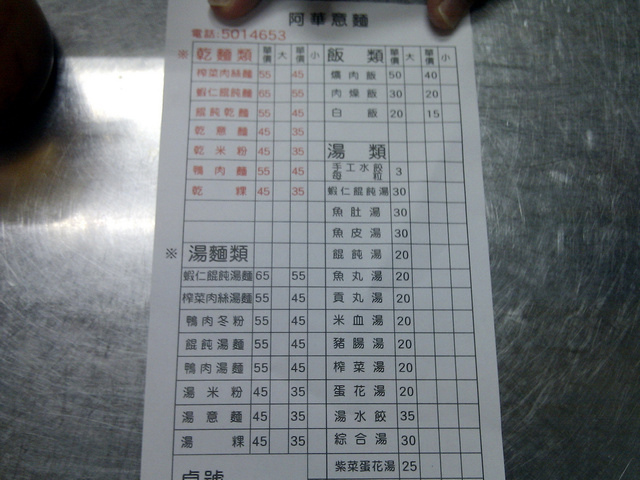 阿華意麵
電話:5014653
※ 乾麵類 單價 大 單價 小 飯類 單價 大 單價 小
榨菜肉絲麵 55 45 爌肉飯 50 40
蝦仁餛飩麵 65 55 肉燥飯 30 20
餛飩乾麵 55 45 白飯 20 15
乾意麵 45 35
乾米粉 45 35 湯類
鴨肉麵 55 45 手工水餃每粒 3
乾粿 45 35 蝦仁餛飩湯 30
魚肚湯 30
魚皮湯 30
※ 湯麵類 餛飩湯 20
蝦仁餛飩湯麵 65 55 魚丸湯 20
榨菜肉絲湯麵 55 45 貢丸湯 20
鴨肉冬粉 55 45 米血湯 20
餛飩湯麵 55 45 豬腸湯 20
鴨肉湯麵 55 45 榨菜湯 20
湯米粉 45 35 蛋花湯 20
湯意麵 45 35 湯水餃 35
湯粿 45 35 綜合湯 30
桌號 紫菜蛋花湯 25